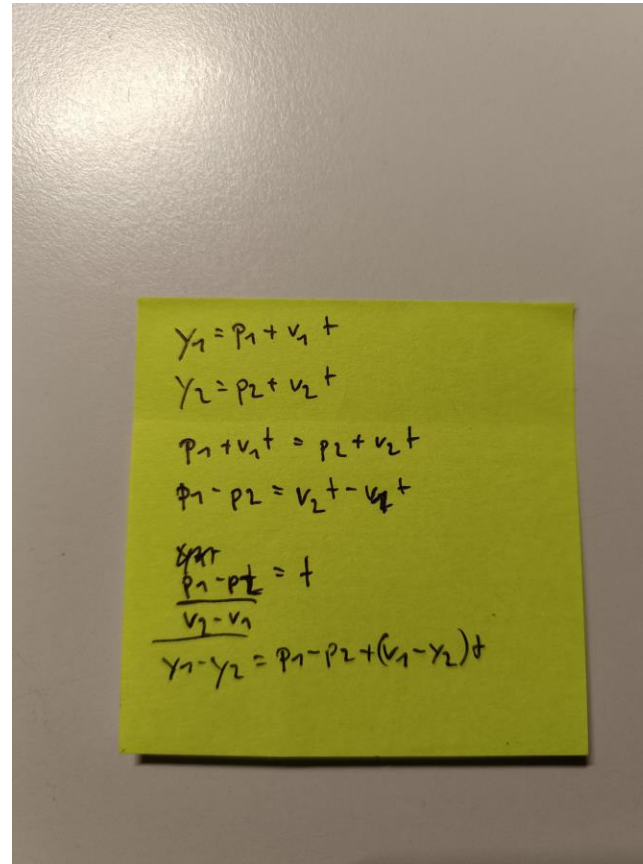 y₁ = p₁ + v₁ t
y₂ = p₂ + v₂ t
p₁ + v₁t = p₂ + v₂t
p₁ - p₂ = v₂t - v₁t
p₁ - p₂ = t
v₂ - v₁
y₁ - y₂ = p₁ - p₂ + (v₁ - y₂)t